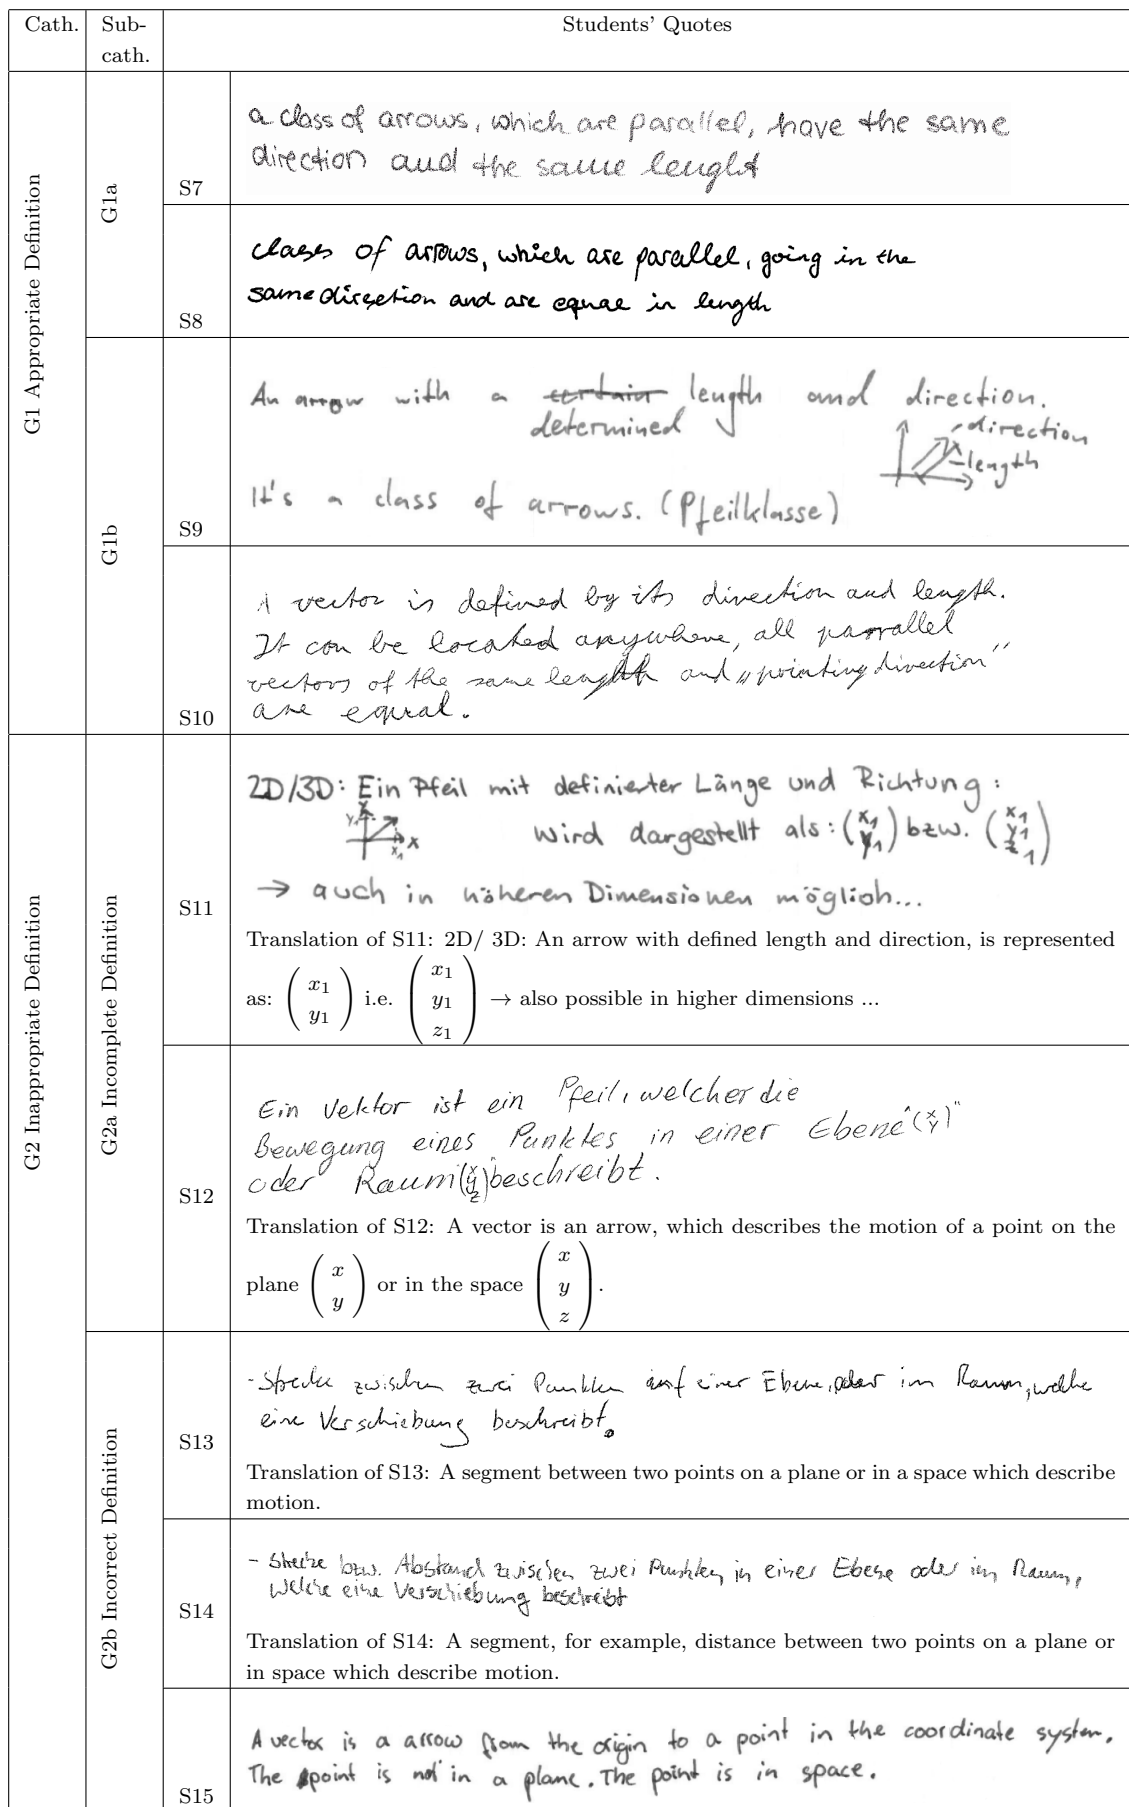 Cath.
Sub-
cath.
Students' Quotes
G1 Appropriate Definition
G1a
S7
a class of arrows, which are parallel, have the same
direction and the same lenght
S8
classes of arrows, which are parallel, going in the
same direction and are equal in length
G1b
S9
An arrow with a certain length and direction.
determined
direction
length
It's a class of arrows. (Pfeilklasse)
S10
A vector is defined by its direction and length.
It can be located anywhere, all parrallel
vectors of the same length and „pointing direction"
are equal.
G2 Inappropriate Definition
G2a Incomplete Definition
S11
2D/3D: Ein Pfeil mit definierter Länge und Richtung:
y x x₁
wird dargestellt als: (x₁ y₁) bzw. (x₁ y₁ z₁)
→ auch in höheren Dimensionen möglich...
Translation of S11: 2D/ 3D: An arrow with defined length and direction, is represented
as: (x₁ y₁) i.e. (x₁ y₁ z₁) → also possible in higher dimensions ...
S12
Ein Vektor ist ein Pfeil, welcher die
Bewegung eines Punktes in einer Ebene "(x y)"
oder Raum (x y z) beschreibt.
Translation of S12: A vector is an arrow, which describes the motion of a point on the
plane (x y) or in the space (x y z).
G2b Incorrect Definition
S13
- Strecke zwischen zwei Punkten auf einer Ebene, oder im Raum, welche
eine Verschiebung beschreibt.
Translation of S13: A segment between two points on a plane or in a space which describe
motion.
S14
- Strecke bzw. Abstand zwischen zwei Punkten in einer Ebene oder im Raum,
welche eine Verschiebung beschreibt
Translation of S14: A segment, for example, distance between two points on a plane or
in space which describe motion.
S15
A vector is a arrow from the origin to a point in the coordinate system.
The point is not in a plane. The point is in space.